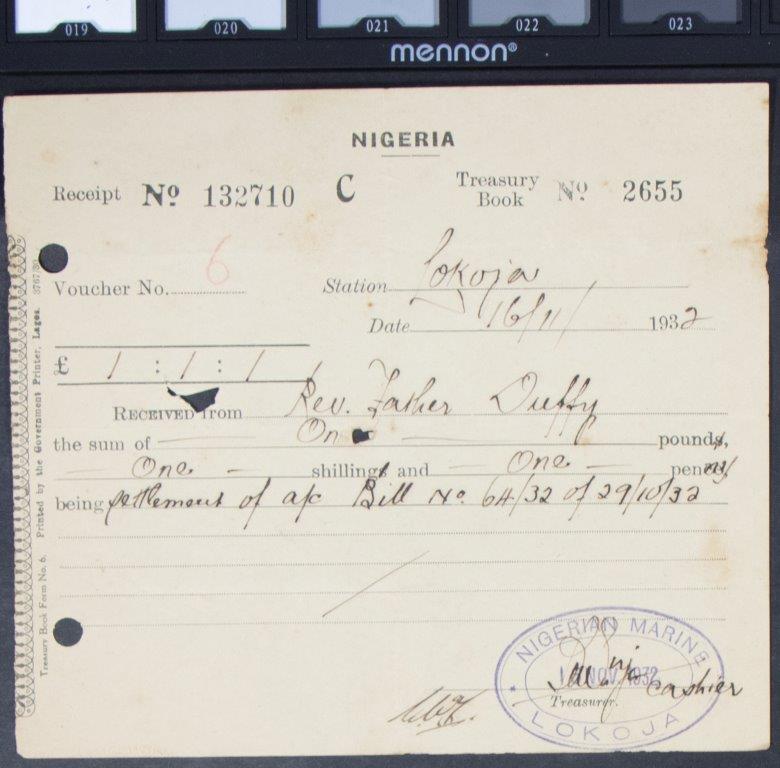 019 020 021 022 023
mennon®
NIGERIA
Receipt Nº 132710 C Treasury Book Nº 2655
Voucher No. 6 Station Lokoja
Date 16/11/ 1932
£ 1 : 1 : 1
RECEIVED from Rev. Father Duffy
the sum of One pounds,
One shillings and One pen
being settlement of a/c Bill No. 64/32 of 29/10/32
NIGERIAN MARINE
NOV. 1932
cashier
Treasurer.
LOKOJA
Treasury Book Form No. 6. Printed by the Government Printer, Lagos. 3767/30